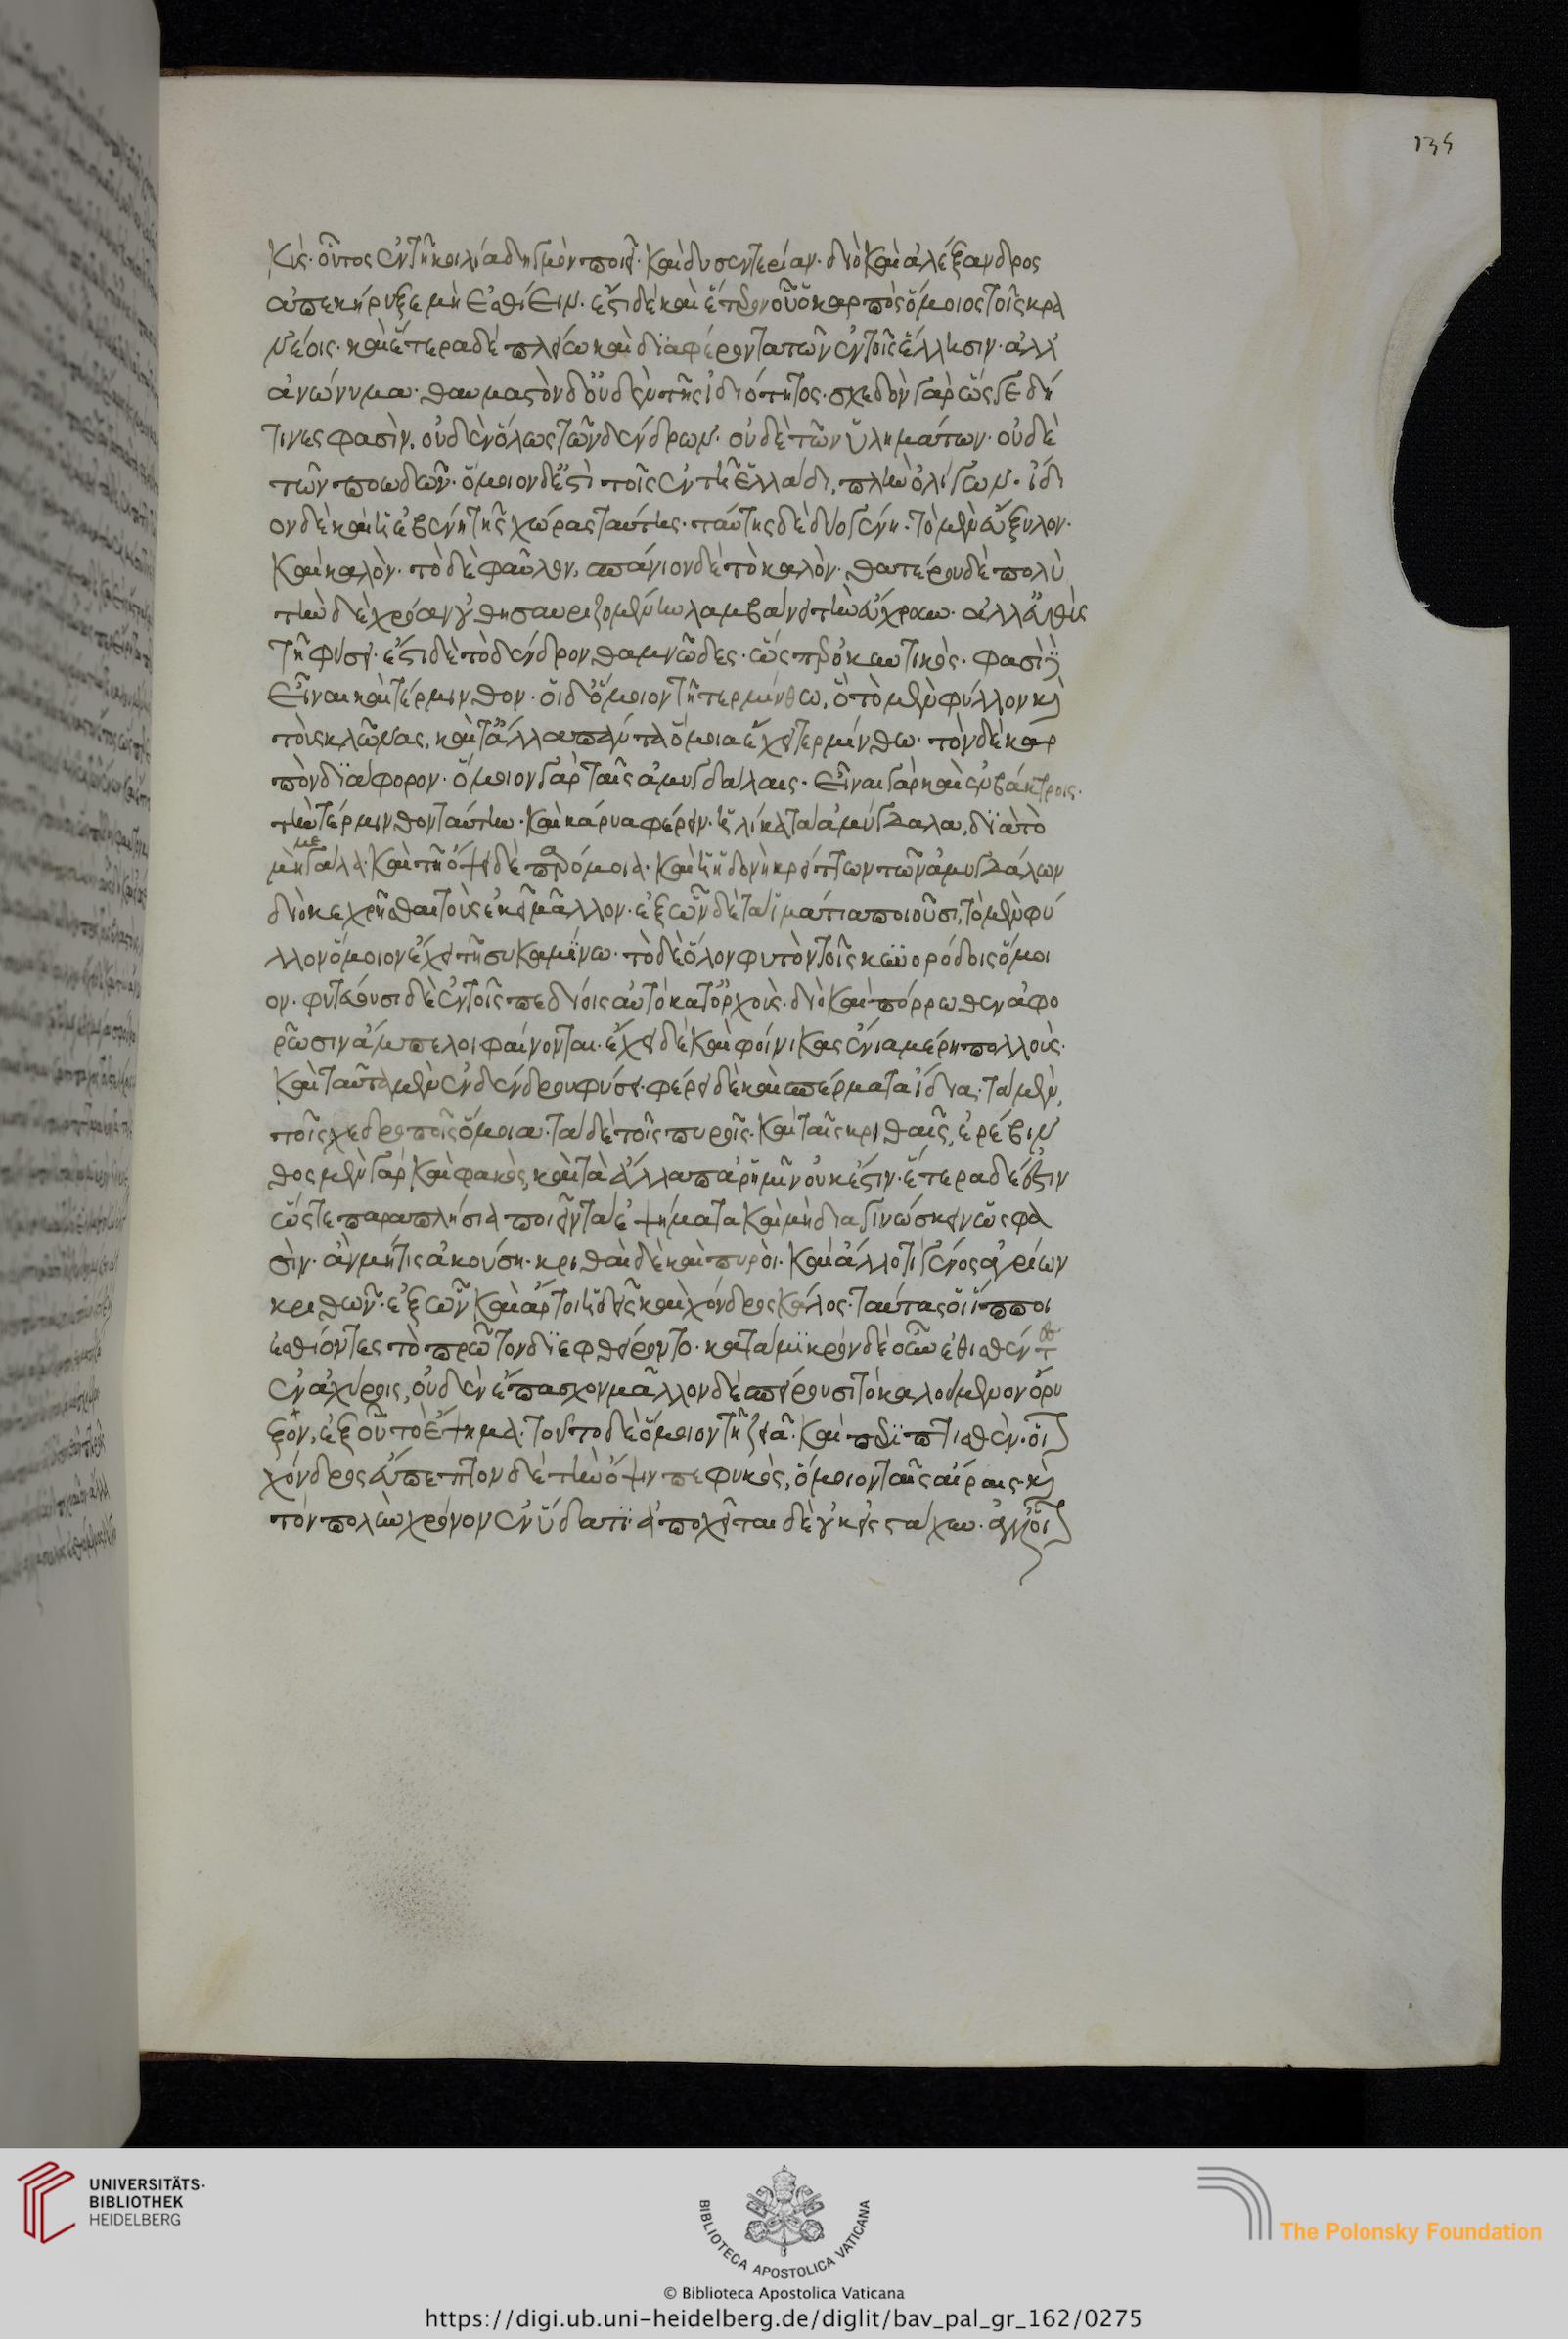 135
κύς. οὗτος ἐν τῆ κοιλία δηγμὸν ποιεῖ. καὶ δυσεντερίαν. διὸ καὶ ἀλέξανδρος
ἀπεκήρυξε μὴ ἐσθίειν. ἔστι δὲ καὶ ἕτερον οὗ ὁ καρπὸς ὅμοιος τοῖς κρα
νέοις. καὶ ἕτερα δὲ πλείω καὶ διαφέροντα τῶν ἐν τοῖς ἕλλησιν. ἀλλ'
ἀνώνυμα. θαυμαστὸν δ' οὐδὲν τῆς ἰδιότητος. σχεδὸν γὰρ ὥς γε δή
τινες φασὶν. οὐδὲν ὅλως τῶν δένδρων. οὐδὲ τῶν ὑλημάτων. οὐδὲ
τῶν ποωδῶν. ὅμοιον δ' ἐστὶ τοῖς ἐν τῆ ἑλλάδι, πλὴν ὀλίγων. ἴδι
ον δὲ καὶ ἡ ἐβένη τῆς χώρας ταύτης. ταύτης δὲ δύο γένη. τὸ μὲν εὔξυλον.
καὶ καλὸν. τὸ δὲ φαῦλον, σπάνιον δὲ τὸ καλὸν. θατέρου δὲ πολὺ
τὴν δὲ χρόαν οὐ θησαυριζομένην λαμβάνει τὴν εὔχροιαν. ἀλλ' εὐθὺς
τῆ φύσει. ἔστι δὲ τὸ δένδρον θαμνῶδες. ὥς περ ὁ κυτικὸς. φασὶ δ'
εἶναι καὶ τέρμινθον. οἱ δ' ὅμοιον τῆ τερμίνθω, ὃ τὸ μὲν φύλλον καὶ
τοὺς κλῶνας, καὶ τἄλλα πάντα ὅμοια ἔχει τερμίνθω. τὸν δὲ καρ
πὸν διάφορον. ὅμοιον γὰρ ταῖς ἀμυγδάλαις. εἶναι γὰρ καὶ ἐν βάκτροις.
τὴν τέρμινθον ταύτην. καὶ κάρυα φέρειν. ἡλίκα τὰ ἀμύγδαλα, διὰ τὸ
μὴ μεγάλα. καὶ τῆ ὄψει δὲ παρόμοια. καὶ ἡ ἡδονὴ κρείττων τῶν ἀμυγδάλων
διὸ κεχρῆσθαι τοὺς ἐκεῖ μᾶλλον. ἐξ ὧν δὲ τὰ ἱμάτια ποιοῦσι, τὸ μὲν φύ
λλον ὅμοιον ἔχει τῆ συκαμίνω. τὸ δὲ ὅλον φυτὸν τοῖς κυνορόδοις ὅμοι
ον. φυτεύουσι δὲ ἐν τοῖς πεδίοις αὐτὸ κατ' ὄρχους. διὸ καὶ πόρρωθεν ἀφο
ρῶσιν ἄμπελοι φαίνονται. ἔχει δὲ καὶ φοίνικας ἔνια μέρη πολλοὺς.
καὶ ταῦτα μὲν ἐν δένδρου φύσει. φέρει δὲ καὶ σπέρματα ἴδια. τὰ μὲν,
τοῖς χεδροποῖς ὅμοια. τὰ δὲ τοῖς πυροῖς. καὶ ταῖς κριθαῖς, ἐρέβιν
θος μὲν γὰρ καὶ φακὸς, καὶ τὰ ἄλλα παρ' ἡμῖν οὐκ ἔστιν. ἕτερα δ' ἐστὶν
ὥστε παραπλήσια ποιεῖν τὰ ἑψήματα καὶ μὴ διαγινώσκειν ὥς φα
σὶν. ἀν μή τις ἀκούση. κριθαὶ δὲ καὶ πυροὶ. καὶ ἄλλό τι γένος ἀγρίων
κριθῶν. ἐξ ὧν καὶ ἄρτοι ἡδεῖς καὶ χόνδρος κάλος. ταύτας οἱ ἵπποι
ἐσθίοντες τὸ πρῶτον διεφθείροντο. κατὰ μικρὸν δὲ οὖν ἐθισθέντες
ἐν ἀχύροις, οὐδὲν ἔπασχον μᾶλλον δὲ σπείρουσι τὸ καλούμενον ὄρυ
ζον, ἐξ οὗ τὸ ἕψημα. τοῦτο δὲ ὅμοιον τῆ ζειᾶ. καὶ περιπτισθὲν. οἷον
χόνδρος εὔπεπτον δὲ τὴν ὄψιν πεφυκὸς, ὅμοιον ταῖς αἴραις. καὶ
τὸν πολὺν χρόνον ἐν ὕδατι. ἀποχεῖται δὲ οὐκ εἰς στάχυν. ἀλλ' οἷον
UNIVERSITÄTS-
BIBLIOTHEK
HEIDELBERG
BIBLIOTECA APOSTOLICA VATICANA
The Polonsky Foundation
© Biblioteca Apostolica Vaticana
https://digi.ub.uni-heidelberg.de/diglit/bav_pal_gr_162/0275